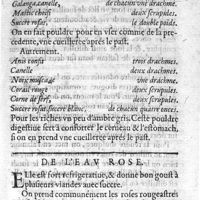 Galanga, canelle, de chacun une drachme.
Mastic choisi deux scrupules.
Succre rosat, le double poids.
On en fait pouldre pour en vser comme de la pre-
cedente, vne cueillerée apres le past.
Autrement.
Anis confit trois drachmes.
Canelle deux drachmes.
Noix muscade vne drachme.
Corail rouge deux scrupules.
Corne de cerf, deux scrupules.
Succre rosat, succre blanc de chacun quatre onces.
Pour les riches vn peu d'ambre gris. Ceste pouldre
digestiue sert à conforter le cerueau & l'estomach,
si on en prend vne cueillerée apres le past.
DE L'EAV ROSE.
Elle est fort refrigeratiue, & donne bon goust à
plusieurs viandes auec succre.
On prend communément les roses rougeastres